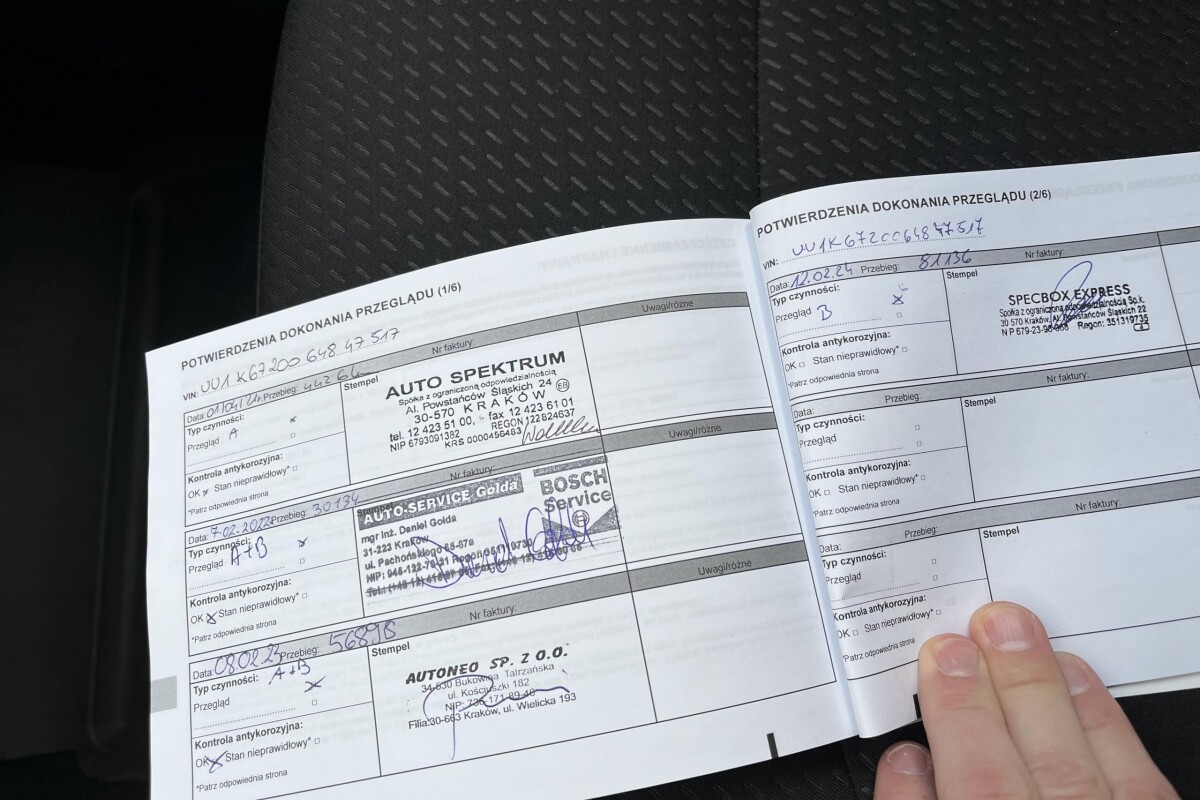 POTWIERDZENIA DOKONANIA PRZEGLĄDU (1/6)
VIN: UU1K67200 648 47 517
Nr faktury:
Uwagi/różne
Data: Przebieg:
Typ czynności:
Przegląd A
Kontrola antykorozyjna:
OK Stan nieprawidłowy*
*Patrz odpowiednia strona
Stempel
AUTO SPEKTRUM
Spółka z ograniczoną odpowiedzialnością
Al. Powstańców Śląskich 24
30-570 KRAKÓW
tel. 12 423 51 00, fax 12 423 61 01
NIP 6793091382 REGON 122824637
KRS 0000456483
Nr faktury:
Uwagi/różne
Data: 7.02.2022 Przebieg: 30134
Typ czynności:
Przegląd A+B
Kontrola antykorozyjna:
OK Stan nieprawidłowy*
*Patrz odpowiednia strona
AUTO-SERVICE Golda
mgr inż. Daniel Golda
31-223 Kraków
ul. Pachońskiego
BOSCH
Service
Nr faktury:
Uwagi/różne
Data: 08.02.23 Przebieg: 56898
Typ czynności: A+B
Przegląd
Kontrola antykorozyjna:
OK Stan nieprawidłowy*
*Patrz odpowiednia strona
Stempel
AUTONEO SP. Z O.O.
34-530 Bukowina Tatrzańska
ul. Kościuszki 182
NIP:
Filia:30-663 Kraków, ul. Wielicka 193
POTWIERDZENIA DOKONANIA PRZEGLĄDU (2/6)
VIN: UU1K67200648 47517
Nr faktury:
Data: 12.02.24 Przebieg: 81136
Typ czynności:
Przegląd B
Kontrola antykorozyjna:
OK Stan nieprawidłowy*
*Patrz odpowiednia strona
Stempel
SPECBOX EXPRESS
Spółka z ograniczoną odpowiedzialnością Sp.k.
30 570 Kraków, Al. Powstańców Śląskich 22
Regon: 351319735
Nr faktury:
Data: Przebieg:
Typ czynności:
Przegląd
Kontrola antykorozyjna:
OK Stan nieprawidłowy*
*Patrz odpowiednia strona
Stempel
Nr faktury:
Data: Przebieg:
Typ czynności:
Przegląd
Kontrola antykorozyjna:
OK Stan nieprawidłowy*
*Patrz odpowiednia strona
Stempel